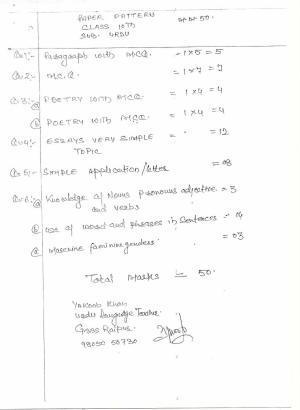 PAPER PATTERN
CLASS 10TH
SUB. URDU
M.M 50.
Q.1:- Paragraph with MCQ. - 1x5 = 5
Q.2:- M.C.Q. = 1x7 = 7
Q.3:- (a) POETRY WITH MCQ = 1x4 = 4
(b) POETRY WITH MCQ = 1x4 = 4
Q.4:- ESSAYS VERY SIMPLE = 12
TOPIC
Q.5:- SIMPLE Application/letter = 08
Q.6:- (a) Knowledge of Nouns Pronouns adjective = 3
and verbs
(b) use of word and phrases in Sentences = 4
(c) Masculine feminine genders = 03
Total Marks = 50.
Yakoob Khan
Urdu Language Teacher.
Raipur.